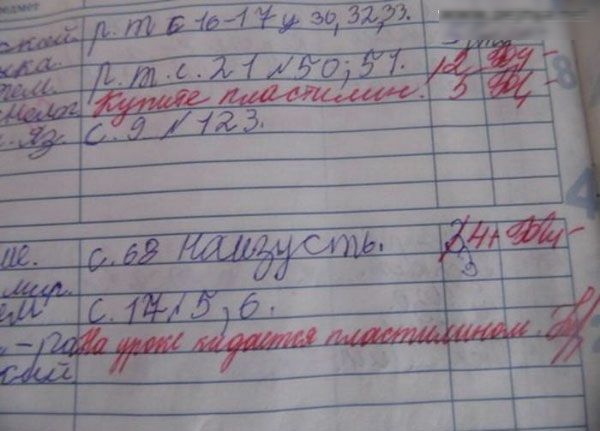 предмет
ский р.т с 16-17 у 30, 32, 33.
ыка.
тем. р.т.с. 21 № 50; 51. 2
нолог Купите пластилин. 3
. яз. с. 9 № 123.
8
4
ие. с. 68 наизусть. 4+
. мир.
ем с. 17 № 5, 6.
На уроке кидается пластилином.
ский